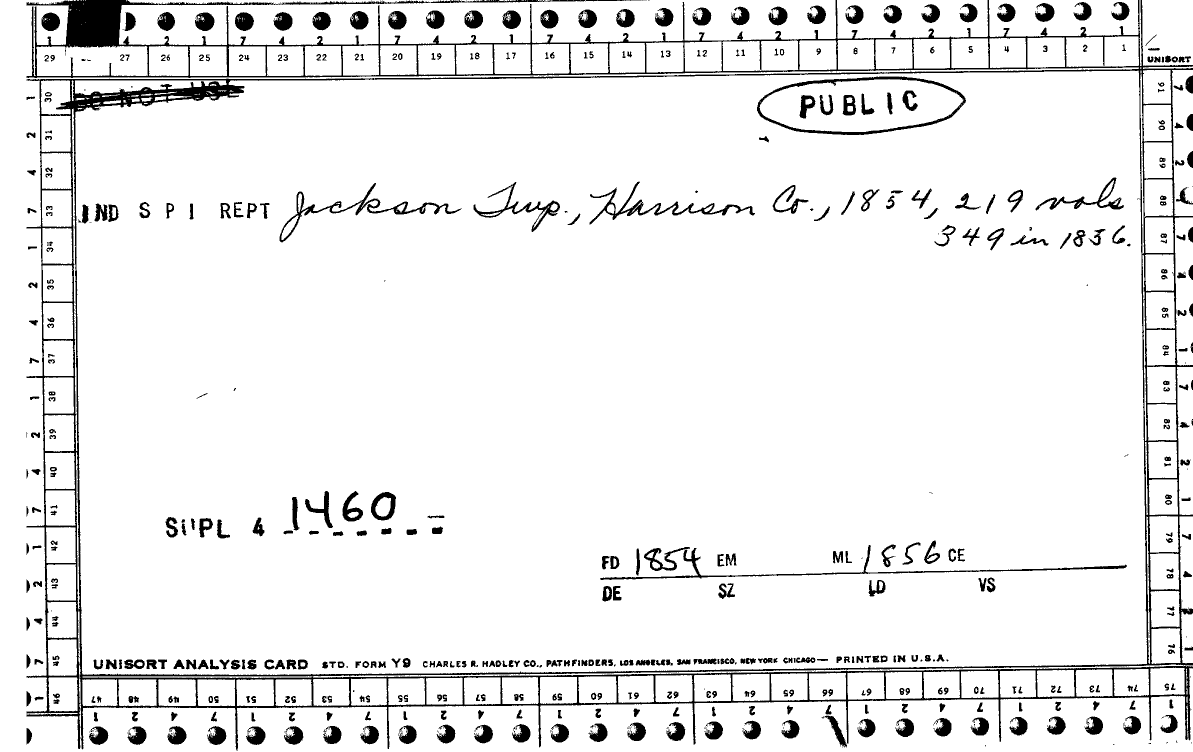 1 4 2 1 7 4 2 1 7 4 2 1 7 4 2 1 7 4 2 1 7 4 2 1 7 4 2 1
29 27 26 25 24 23 22 21 20 19 18 17 16 15 14 13 12 11 10 9 8 7 6 5 4 3 2 1
UNISORT
DO NOT USE
PUBLIC
IND S P I REPT Jackson Twp., Harrison Co., 1854, 219 vols
349 in 1836.
SUPL 4 1460
FD 1854 EM ML 1856 CE
DE SZ LD VS
UNISORT ANALYSIS CARD STD. FORM Y9 CHARLES R. HADLEY CO., PATHFINDERS, LOS ANGELES, SAN FRANCISCO, NEW YORK CHICAGO — PRINTED IN U.S.A.
1 30
2 31
4 32
7 33
1 34
2 35
4 36
7 37
1 38
2 39
4 40
7 41
1 42
2 43
4 44
7 45
1 46
91 7
90 4
89 2
88
87 7
86 4
85 2
84 1
83 7
82 4
81 2
80 1
79 7
78 4
77 2
76 1
47 48 49 50 51 52 53 54 55 56 57 58 59 60 61 62 63 64 65 66 67 68 69 70 71 72 73 74 75
1 2 4 7 1 2 4 7 1 2 4 7 1 2 4 7 1 2 4 7 1 2 4 7 1 2 4 7 1